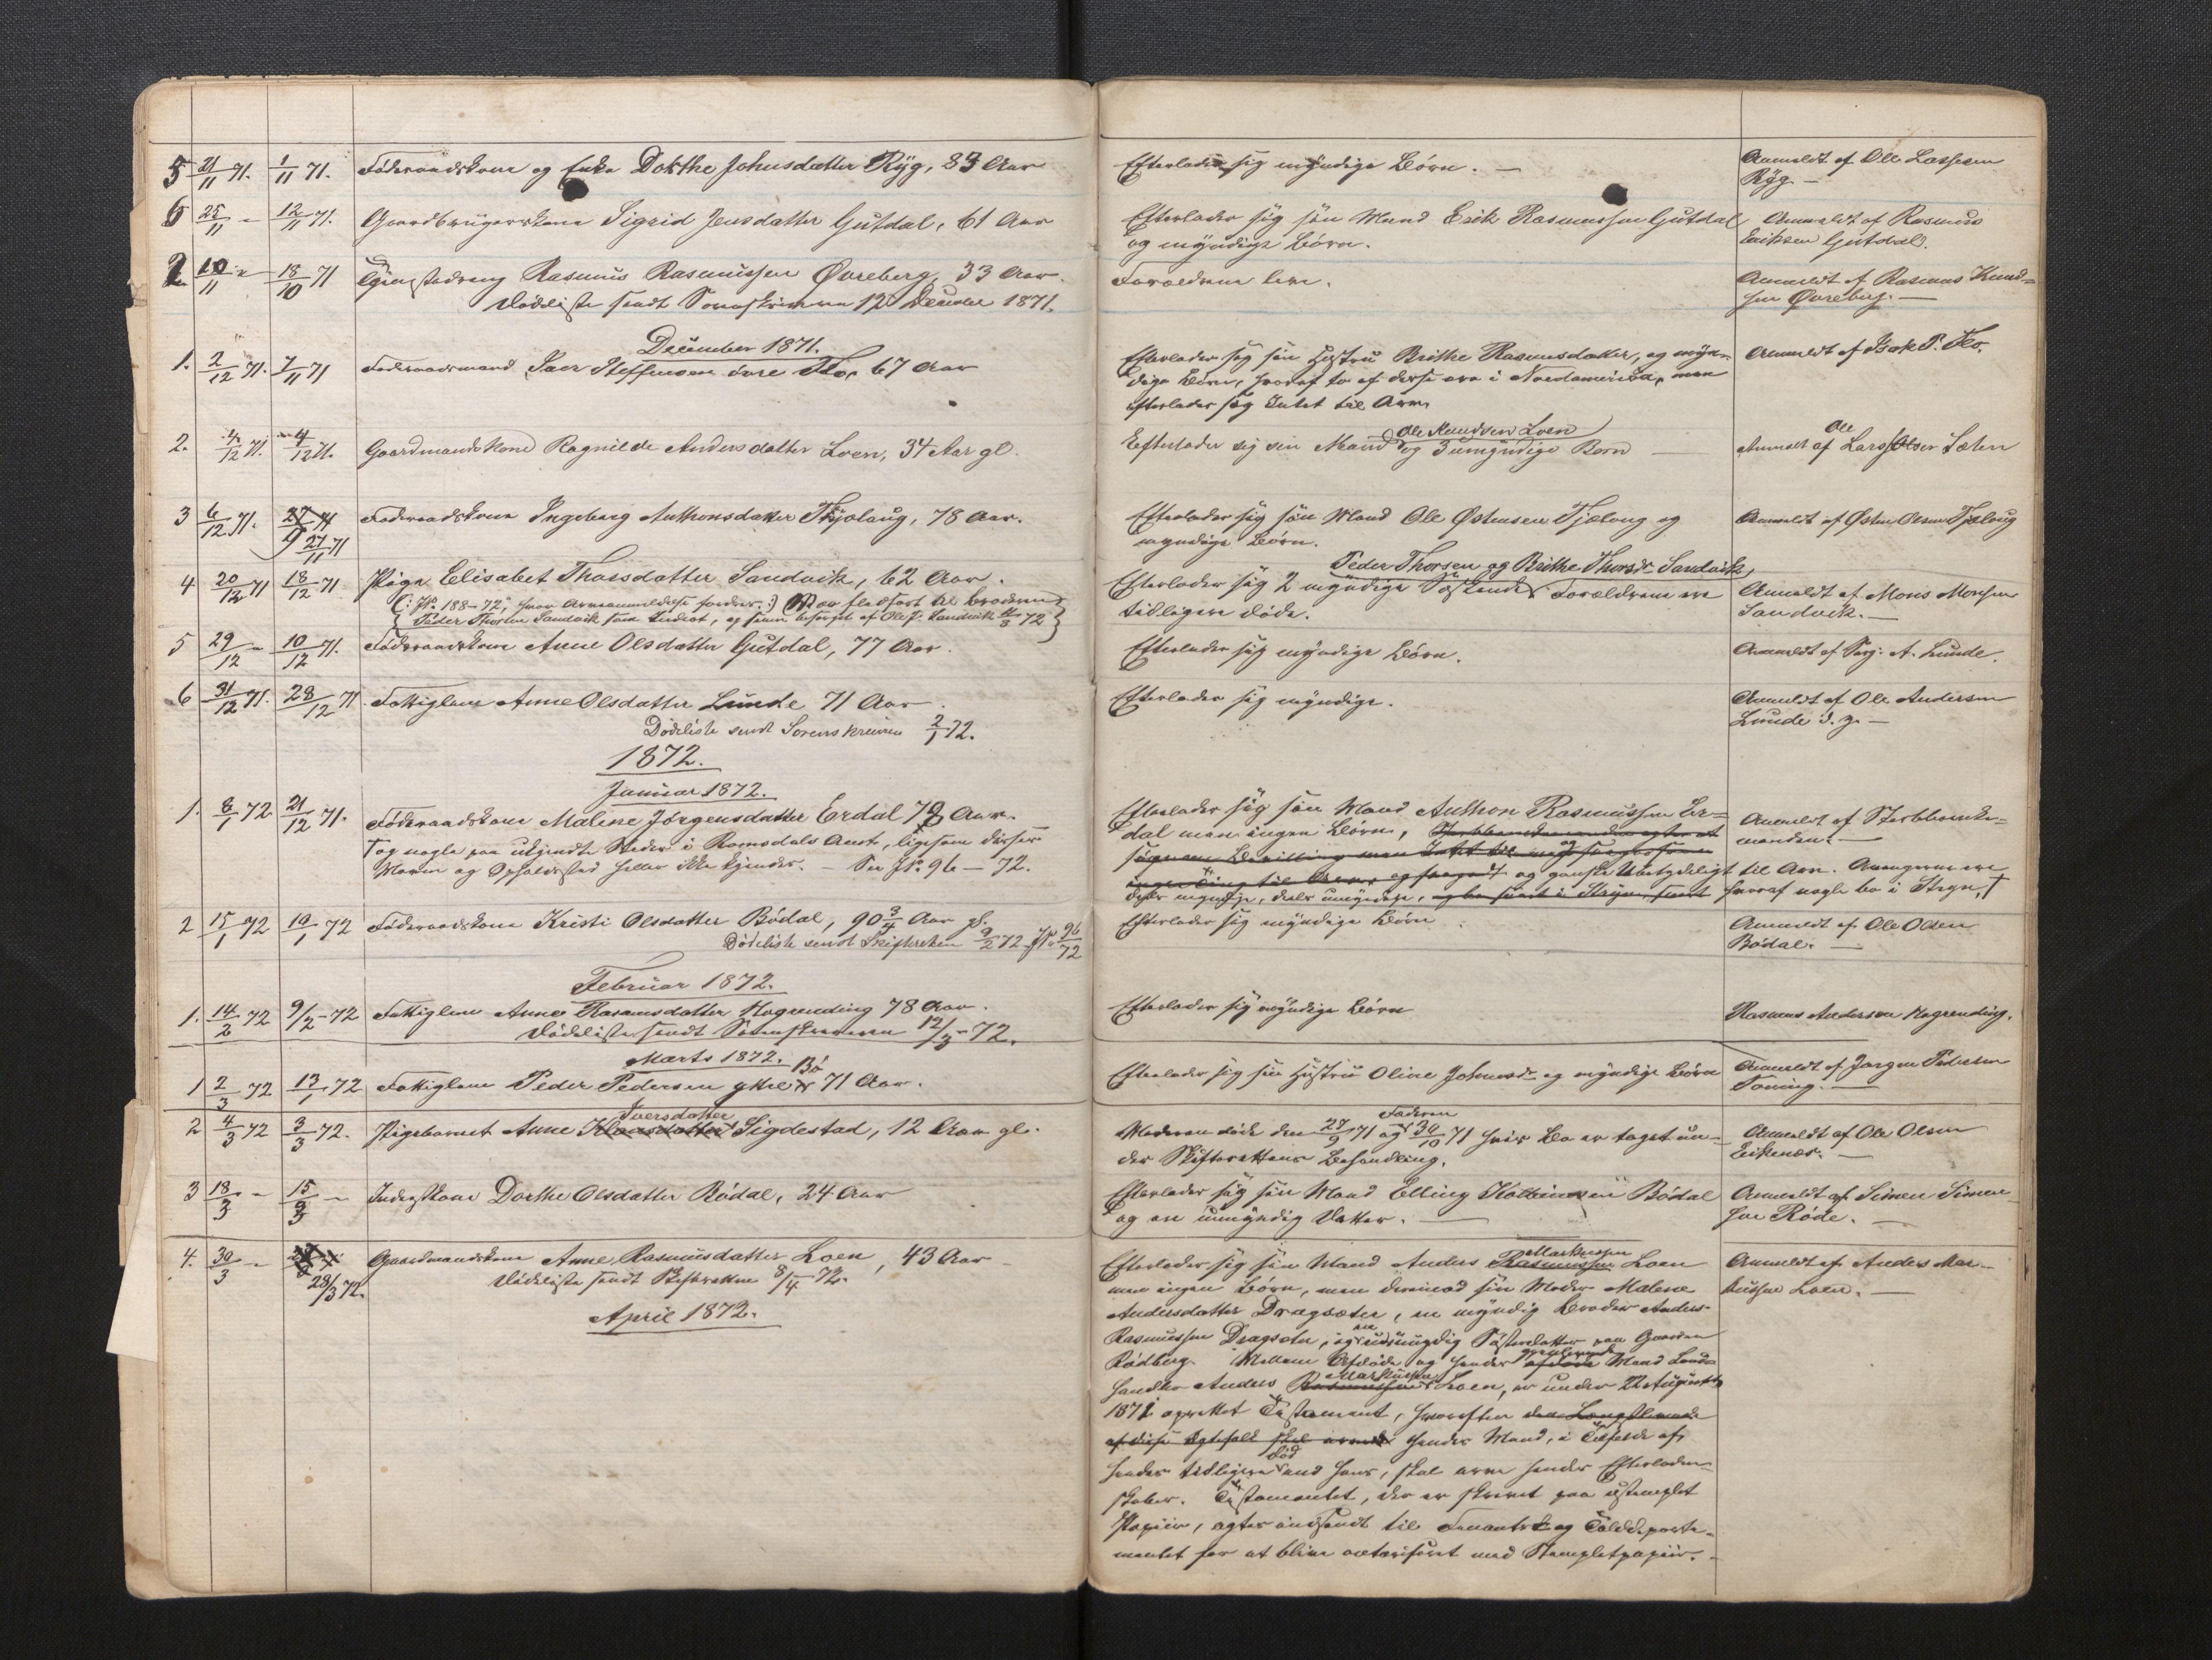 5 21/11 71. 1/11 71. Föderaadskone og Enke Dorthe Johnsdatter Ryg, 83 Aar
Efterlader sig myndige Börn. —
Anmeldt af Ole Lassesen
Ryg —
6 25/11 - 12/11 71. Gaardbrugerskone Sigrid Jensdatter Gutdal, 61 Aar
Efterlader sig sin Mand Erik Rasmussen Gutdal
og myndige Börn.
Anmeldt af Rasmus
Eriksen Gutdal.
10/11 - 18/10 71 Tjenestedreng Rasmus Rasmussen Øvreberg, 33 Aar.
Dödsliste sendt Sorenskriveren 12 December 1871.
Forældrene leve.
Anmeldt af Rasmus Knud-
sen Øvreberg. —
December 1871.
1. 2/12 71. 7/11 71 Föderaadsmand Steffensen övre Flo, 67 Aar
Efterlader sig sin Hustru Brithe Rasmusdatter, og myn-
dige Börn, hvoraf to af disse ere i Nordamerika, men
efterlader sig Intet til Arv.
Anmeldt af Isak P. Flo.
2. 4/12 71. 4/12 71. Gaardmandskone Ragnilde Andersdatter Loen, 34 Aar gl.
Ole Knudsen Loen
Efterlader sig sin Mand og 3 umyndige Börn —
Ole
Anmeldt af Lars Olsen Sæten
3 6/12 71. 27/9 71 27/11 71 Föderaadskone Ingeborg Anthonsdatter Tjølaug, 78 Aar.
Efterlader sig sin Mand Ole Østensen Tjølaug og
myndige Börn.
Anmeldt af Østen Olsen Tjølaug
4 20/12 71 18/12 71. Pige Elisabet Thorsdatter Sandvik, 62 Aar.
(: J№ 188-72, hvor Arveanmeldelse fordres :) Var fledfört til Broderen
Peder Thorsen Sandvik som Indiot, og senere besörget af Ole P. Sandvik
Peder Thorsen og Brithe Thorsdr. Sandvik,
Efterlader sig 2 myndige Söskende. Forældrene ere
tidligere döde.
Anmeldt af Mons Monsen
Sandvik. —
5 29/12 - 10/12 71. Föderaadskone Anne Olsdatter Gutdal, 77 Aar.
Efterlader sig myndige Börn.
Anmeldt af Serg. A. Lunde.
6 31/12 71. 28/12 71. Fattiglem Anne Olsdatter Lunde 71 Aar.
Dödsliste sendt Sorenskriveren 2/1 72.
Efterlader sig myndige.
Anmeldt af Ole Andersen
Lunde d. y. —
1872.
Januar 1872.
1. 8/1 72 21/12 71. Föderaadskone Malene Jørgensdatter Erdal 78 Aar.
og nogle paa ukjendte Steder i Romsdals Amt, ligesom disses
Navne og Opholdssted heller ikke kjendes. — See J№ 96 — 72.
Efterlader sig sin Mand Anthon Rasmussen Er-
dal men ingen Börn,
og ganske Ubetydeligt til Arv. Arvingerne ere
dels myndige, dels umyndige, hvoraf nogle bo i Stryn,
Anmeldt af Sterbboenke-
manden. —
2 15/1 72 10/1 72 Föderaadskone Kristi Olsdatter Bödal, 90 3/4 Aar gl.
Dödsliste sendt Skifteretten 9/2 72 J№ 96/72
Efterlader sig myndige Börn.
Anmeldt af Ole Olsen
Bödal. —
Februar 1872.
1. 14/2 72 9/2 - 72 Fattiglem Anne Rasmusdatter Hogrending 78 Aar.
Dödsliste sendt Sorenskriveren 12/3 - 72.
Efterlader sig myndige Börn
Rasmus Andersen Hogrending.
Marts 1872.
1 2/3 72 13/1 72 Fattiglem Peder Pedersen ytre Bö 71 Aar.
Efterlader sig sin Hustru Oline Johnsdr og myndige Börn
Anmeldt af Jørgen Pedersen
Toning. —
2 4/3 72 3/3 72. Pigebarnet Anne Klausdatter Iversdatter Sigdestad, 12 Aar gl.
Moderen döde den 27/9 71 og Faderen 30/10 71 hvis Bo er taget un-
der Skifterettens Behandling.
Anmeldt af Ole Olsen
Eikenæs. —
3 18/3 - 15/3 - Inderstkone Dorthe Olsdatter Bödal, 24 Aar
Efterlader sig sin Mand Elling Kolbeinsen Bödal
og en umyndig Datter. —
Anmeldt af Simen Simen-
sen Röde. —
4. 30/3 - 28/3 72. Gaardmandskone Anne Rasmusdatter Loen, 43 Aar
Dödsliste sendt Skifteretten 8/4 - 72.
Efterlader sig sin Mand Anders Rasmussen Markussen Loen
men ingen Börn, men derimod sin Moder Malene
Andersdatter Dragsæter, en myndig Broder Anders
Rasmussen Dragsæter, og en umyndig Søsterdatter paa Gaarden
Rödberg. Mellem Afdöde og hendes afdöde gjenlevende Mand Land-
handler Anders Rasmussen Markussen Loen, er under 22 August
1871 oprettet Testament, hvorefter den Længstlevende
af disse Egtefolk skal arve hendes Mand, i Tilfælde af
hendes tidligere Död end hans, skal arve hendes Efterladen-
skaber. Testamentet, der er skrevet paa ustemplet
Papiir, agtes indsendt til Finants- og Tolddeparte-
mentet for at blive notariseret med Stempletpapiir. —
Anmeldt af Anders Mar-
kussen Loen. —
April 1872.